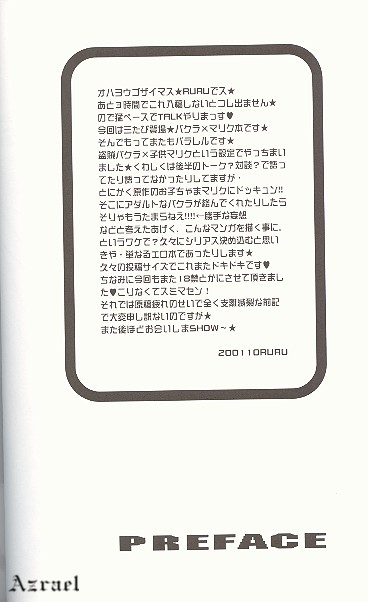 オハヨウゴザイマス★RURUでス★
あと3時間でこれ入稿しないとコレ出ません★
ので猛ペースでTALKやりまっす♥
今回は三たび登場★バクラ×マリク本です★
そんでもってまたもパラレルです★
盗賊バクラ×子供マリクという設定でやっちまい
ました★くわしくは後半のトーク?対談?で語っ
てたり語ってなかったりしてますが・
とにかく原作のお子ちゃまマリクにドッキュン!!
そこにアダルトなバクラが絡んでくれたりしたら
そりゃもうたまらねえ!!!!←勝手な妄想
などと考えたあげく、こんなマンガを描く事に。
というワケで?久々にシリアス決め込むと思い
きや・単なるエロ本であったりします★
久々の投稿サイズでこれまたドキドキです♥
ちなみに今回もまた18禁とかにさせて頂きまし
た♥こりなくてスミマセン!
それでは原稿疲れのせいで全く支離滅裂な前記
で大変申し訳ないのですが★
また後ほどお会いしまSHOW~★
200110RURU
PREFACE
Azrael